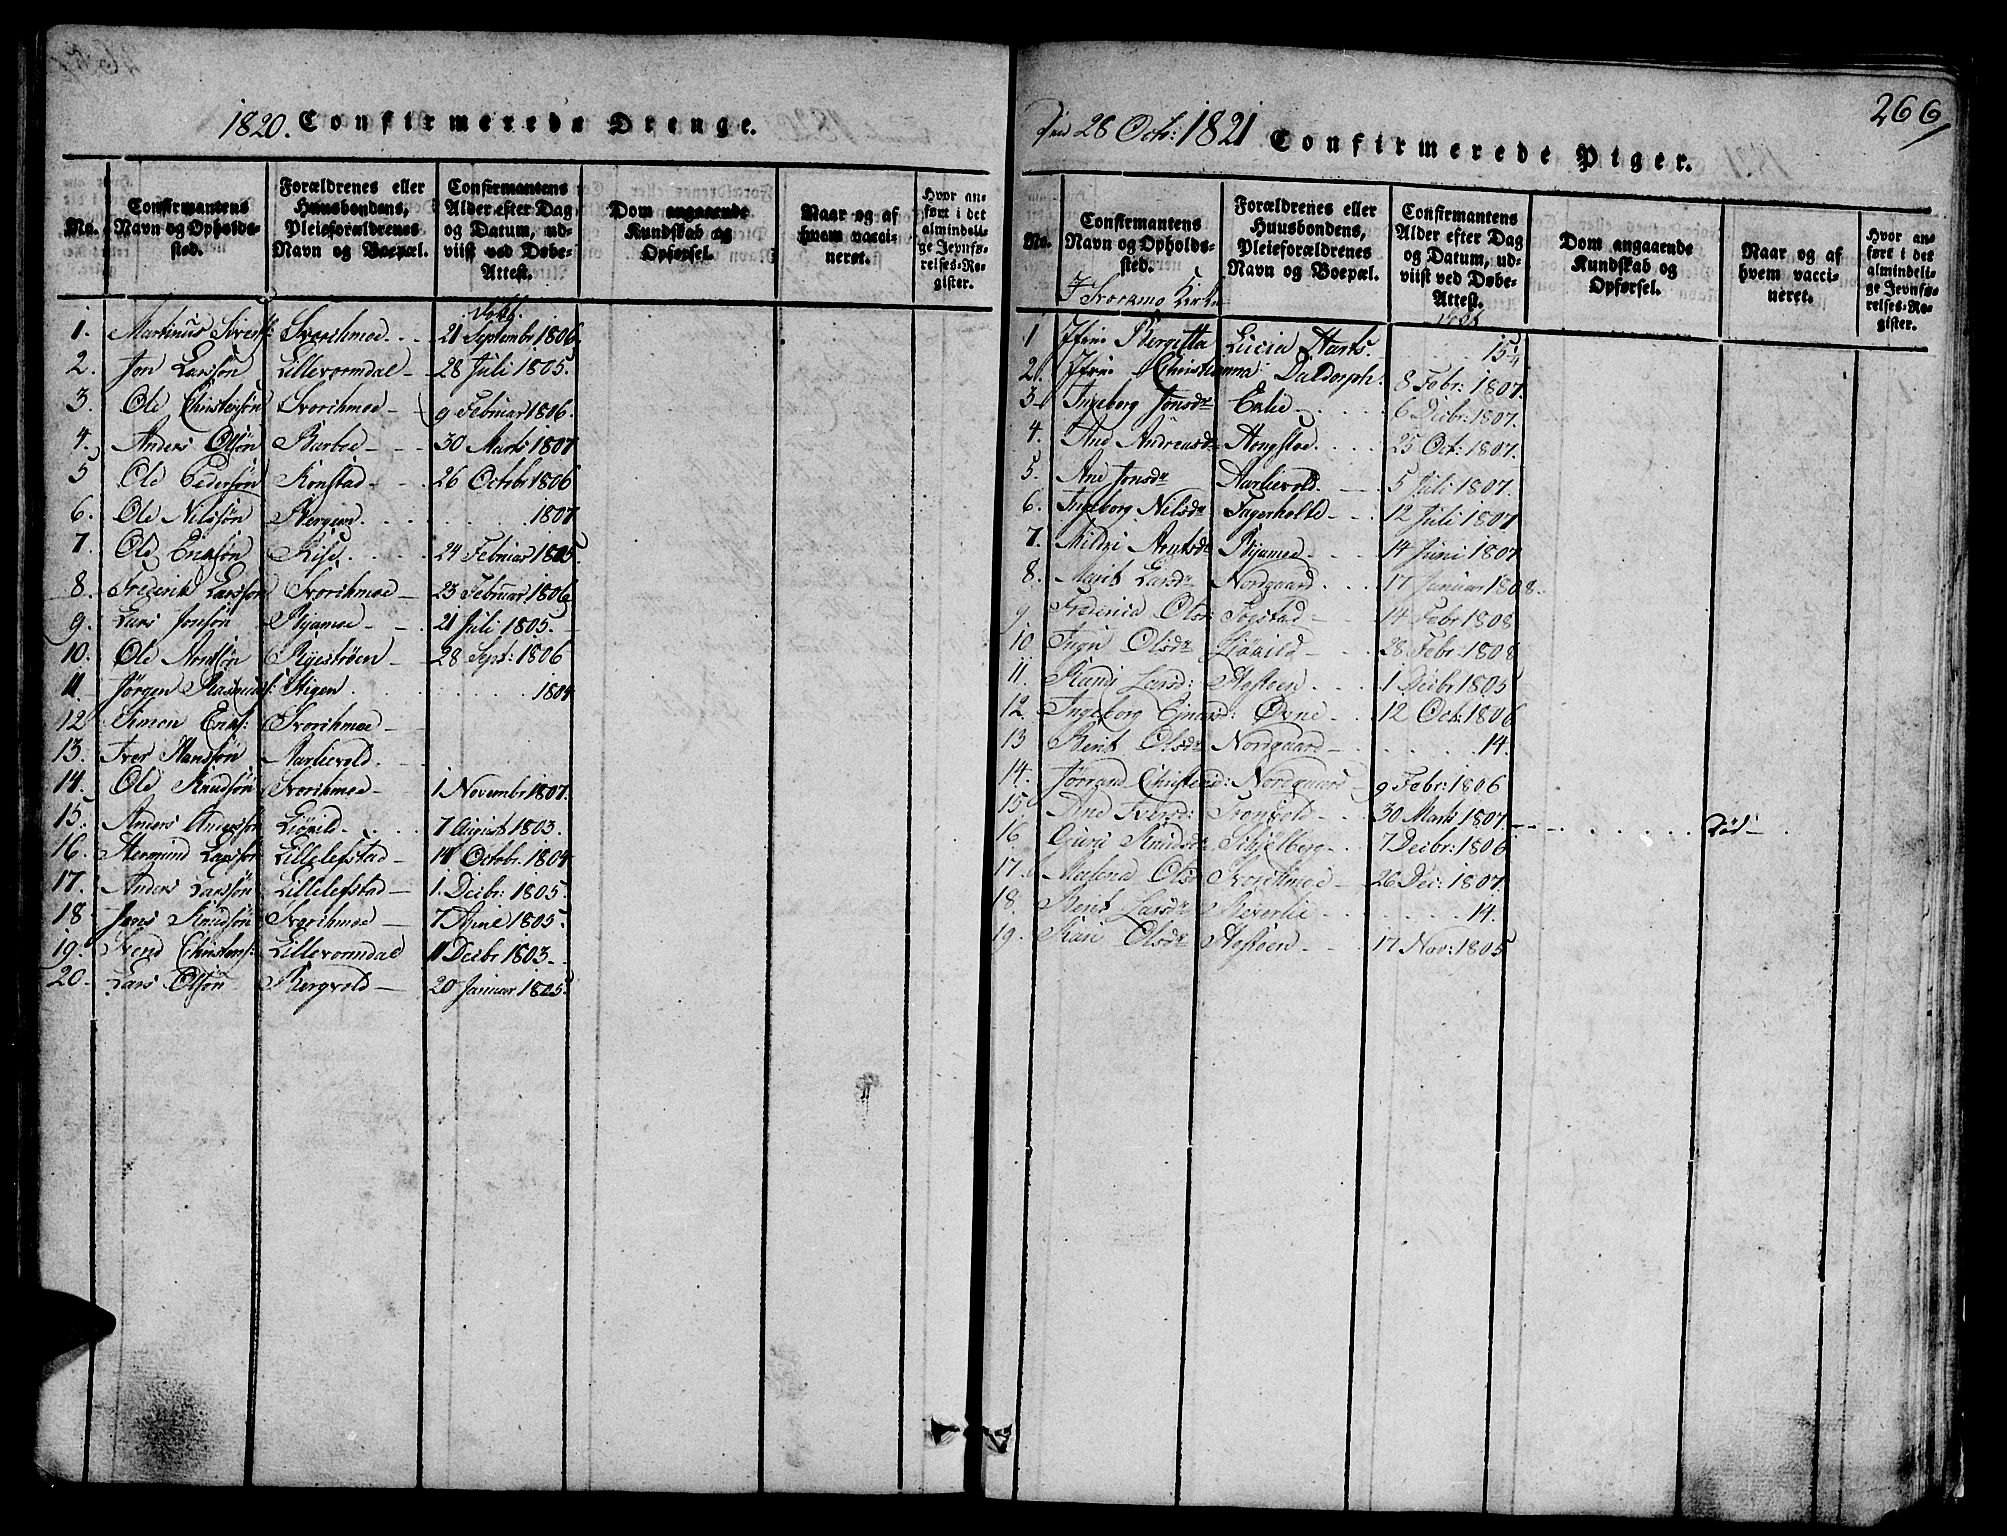 1820. Confirmerede Drenge.
No.
Confirmantens Navn og Opholds-sted.
Forældrenes eller Huusbondens, Pleieforældrenes Navn og Boepæl.
Confirmantens Alder efter Dag og Datum, ud-viist ved Døbe-Attest.
Dom angaaende Kundskab og Opførsel.
Naar og af hvem vacci-neret.
Hvor an-ført i det almindeli-ge Jevnfø-relses-Re-gister.
1. Martinus Sivert: Svorchmoe 21 Septembr 1806
2. Jon Larssøn Lillevormdal 28 Juli 1805.
3. Ole Christensøn Svorchmoe 9 Februar 1806.
4. Anders Olsøn 30 Marts 1807
5 Ole Pedersøn Konstad 26 Octobr 1806
6. Ole Nilssøn 1807
7. Ole Erikssøn 24 Februar 1805.
8. Frederik Larssøn Svorchmoe 23 Februar 1806
9. Lars Jonsøn Ryamoe 21 Juli 1805.
10. Ole Arntsøn 28 Sept: 1806
11 Jørgen Rasmus: Stigen 1804
12 Simon Eriks: Svorchmoe
13. Iver Hanssøn Aarlievold
14. Ole Knudsøn Svorchmoe 1 Novembr 1807.
15. Anders Andersøn 7 August 1803.
16. Larssøn Lillelefstad 14 Octobr. 1804
17. Anders Larssøn Lillelefstad 1. Decbr: 1805.
18 Jens Knudsøn Svorchmoe 7 April 1805.
19. Svend Christens: Lillevormdal 11 Decbr 1803
20. Lars Olsøn Bergvold 20 Januar 1805.
266
Den 28 Octb: 1821 Confirmerede Piger.
No.
Confirmantens Navn og Opholds-sted.
Forældrenes eller Huusbondens, Pleieforældrenes Navn og Boepæl.
Confirmantens Alder efter Dag og Datum, ud-viist ved Døbe-Attest.
Dom angaaende Kundskab og Opførsel.
Naar og af hvem vacci-neret.
Hvor an-ført i det almindeli-ge Jevnfø-relses-Re-gister.
I Kirke
1 Jfru Bergitta Lucia 15 1/4
2. Jfru Christianna Daldorph. 8 Febr: 1807.
3 Ingeborg Jonsdr 6 Decbr: 1807.
4. Ane 25 Oct: 1807.
5. Ane Jonsdr Aarlievold 5 Juli 1807.
6. Ingeborg Nilsdr Fagerholte 12 Juli 1807
7. Mildri Arntsdr Ryamoe 14 Juni 1807
8. Marit Larsdr Nordgaard 17 Januar 1808.
9 Frederica Ols: 14 Febr 1808
10 Ingri Olsdr 28 Febr 1808
11. Randi Larsd: 1 Decbr 1805
12. Ingeborg Øvne 12 Oct: 1806
13 Berit Olsdr Nordgaard 14.
14. Christensd: Nordgaard 9 Febr: 1806
15. Ane Iversd: Tronvold 30 Marts 1807. død
16 Guru Knudsdr 7 Decbr: 1806
17. Olsd Svorchmoe 26 Dec: 1807.
18. Berit Larsdr 14.
19. Kari Olsdr 17 Nov: 1805